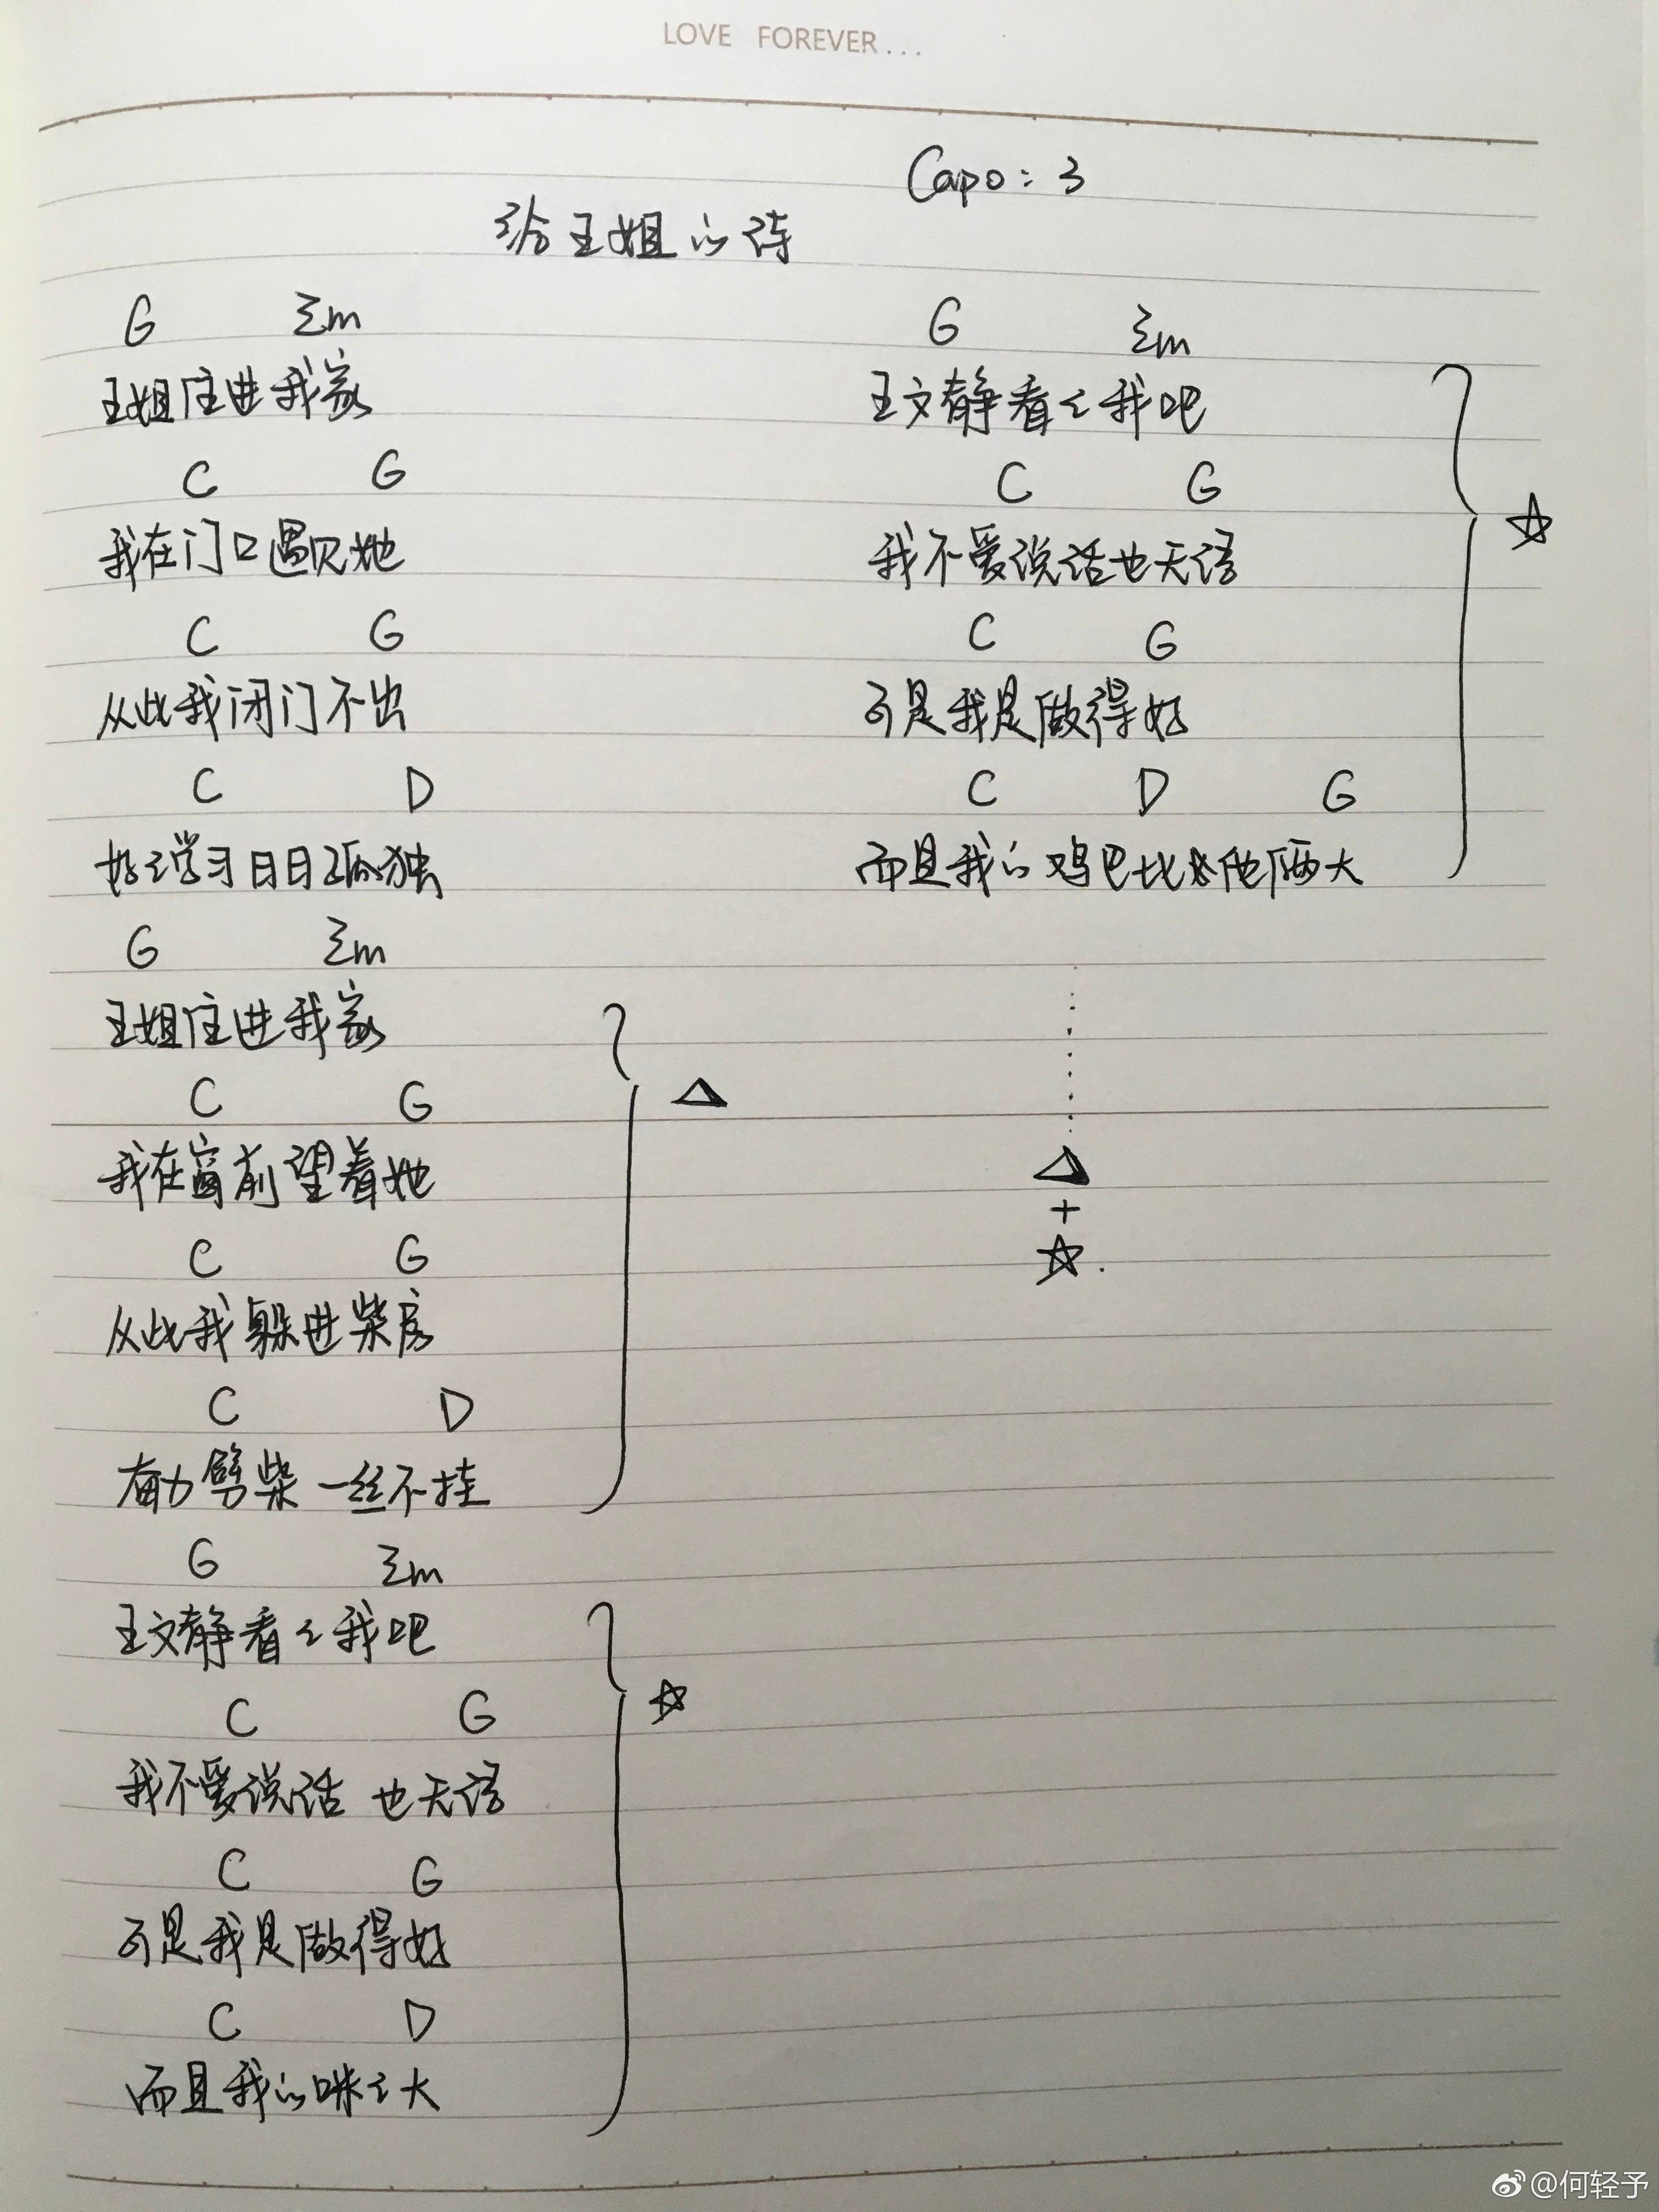 LOVE FOREVER...
Capo: 3
给王姐的诗
G Em
王姐住进我家
C G
我在门口遇见她
C G
从此我闭门不出
C D
好好学习日日孤独
G Em
王姐住进我家
C G
我在窗前望着她
C G
从此我躲进柴房
C D
奋力劈柴一丝不挂
G Em
王文静看看我吧
C G
我不爱说话 也无语
C G
可是我是做得好
C D
而且我的咪咪大
G Em
王文静看看我吧
C G
我不爱说话也无语
C G
可是我是做得好
C D G
而且我的鸡巴比他俩大
△
☆
☆
△
+
☆.
@何轻予